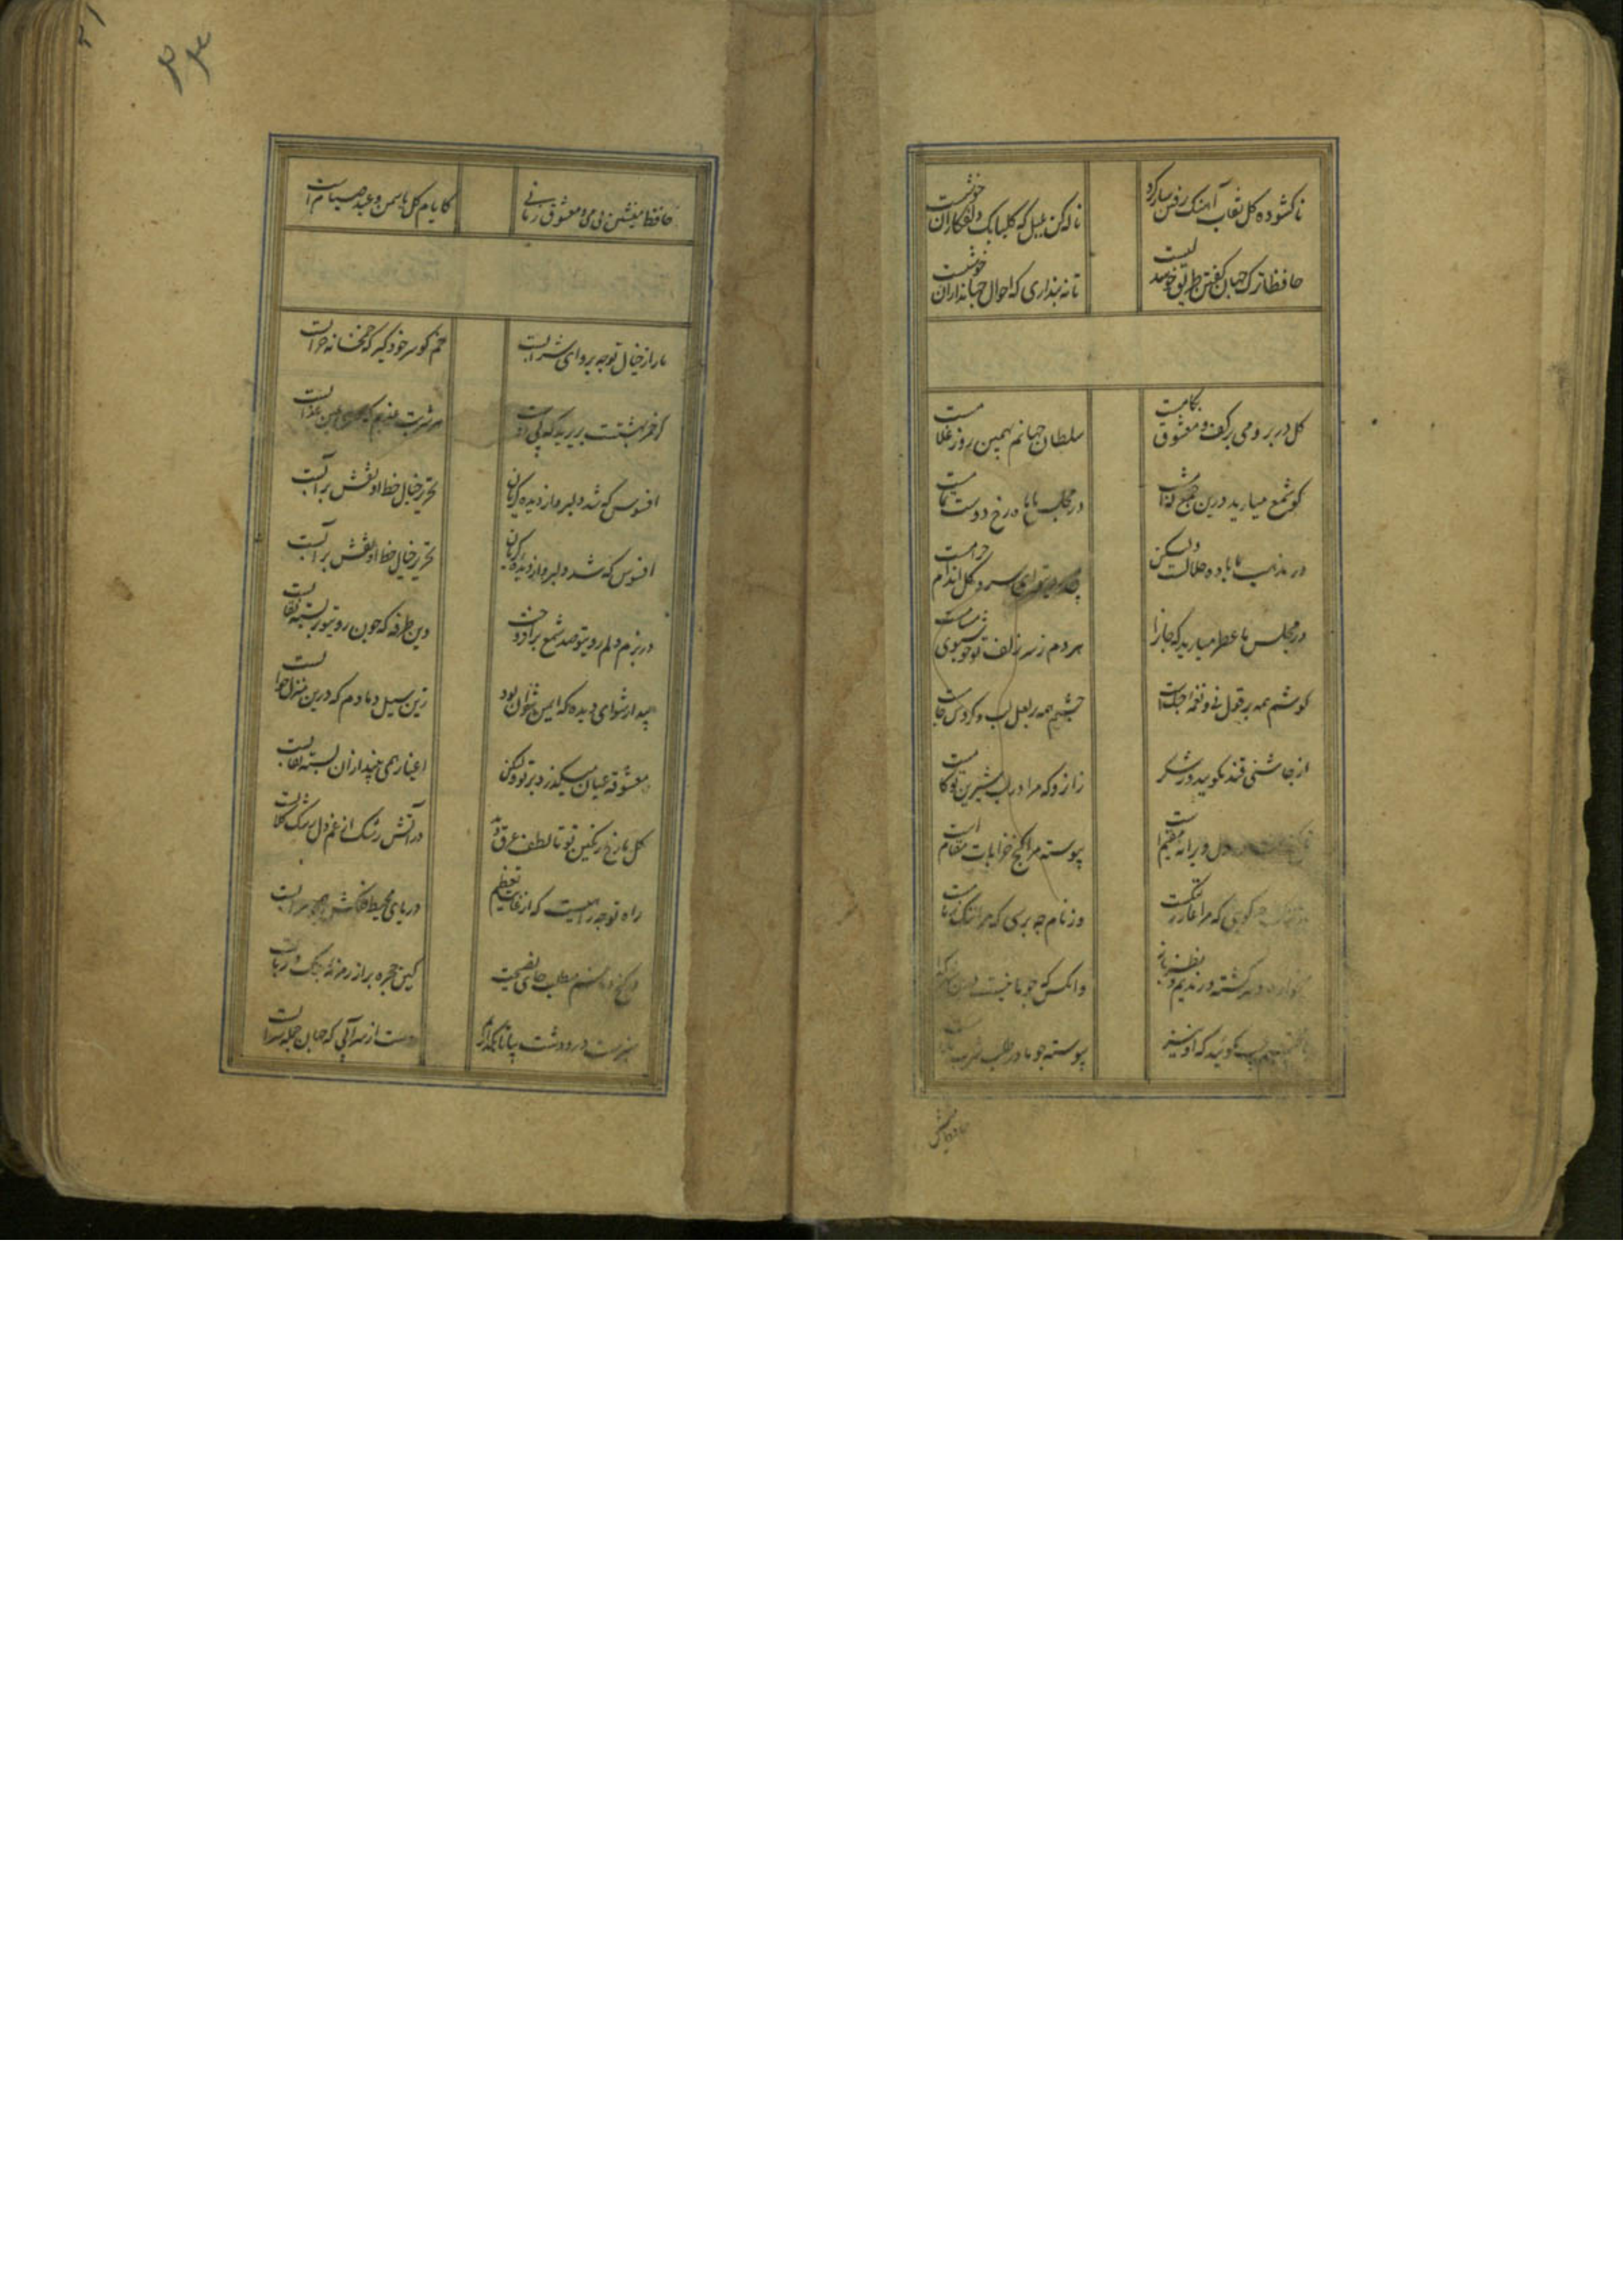 ناکشوده کل نقاب آهنک رفتن ساز کرد ناله کن بلبل که کلبانک دلفکاران خوشست
حافظا ترک جهان کفتن طریق خوشدلیست تا نه پنداری که احوال جهانداران خوشست
کل در بر و می بر کف و معشوق بکامست سلطان جهانم بهمین روز غلامست
کو شمع میارید درین جمع که امشب در مجلس ما ماه رخ دوست تمامست
در مذهب ما باده حلالست ولیکن بی روی تو ای سرو کل اندام حرامست
در مجلس ما عطر میارید که جانرا هر دم ز سر زلف تو خوشبوی مشامست
کوشم همه بر قول نی و نغمه چنکست چشمم همه بر لعل لب و کردش جامست
از چاشنی قند مکویید و ز شکر زانرو که مرا در لب شیرین تو کامست
دل ویرانه مقیمست پیوسته مرا کنج خرابات مقامست
چه کویی که مرا عار ز ننکست وز نام چه پرسی که مرا ننک ز نامست
و سرکشته و رندیم و نظرباز وانکس که چو ما نیست درین شهر
مکویید که او نیز پیوسته چو ما در طلب شرب
حافظ منشین بی می و معشوق زمانی کایام کل و یاسمن و عید صیامست
ما را ز خیال تو چه پروای شرابست خم کو سر خود کیر که خمخانه خرابست
کر خمر بهشتست بریزید که بی دوست هر شربت عذبم که عین عذابست
افسوس که شد دلبر و از دیده کریان تحریر خیال خط او نقش بر آبست
افسوس که شد دلبر و از دیده کریان تحریر خیال خط او نقش بر آبست
در بزم دلم روی تو صد شمع برافروخت وین طرفه که چون روی تو بر بسته نقابست
بیدار شو ای دیده که ایمن نتوان بود زین سیل دمادم که درین منزل خوابست
معشوقه عیان میکذرد بر تو ولیکن اغیار همی بیند از آن بسته نقابست
کل بر رخ رنکین تو تا لطف عرق دید در آتش رشک از غم دل غرق کلابست
راه تو چه راهیست که از غایت تعظیم دریای محیط فلکش سرابست
در کنج دماغم مطلب جای نصیحت کین حجره پر از زمزمه چنک و ربابست
سبزست در و دشت بیا تا نکذاریم دست از سر آبی که جهان جمله سرابست
حافظ منشین